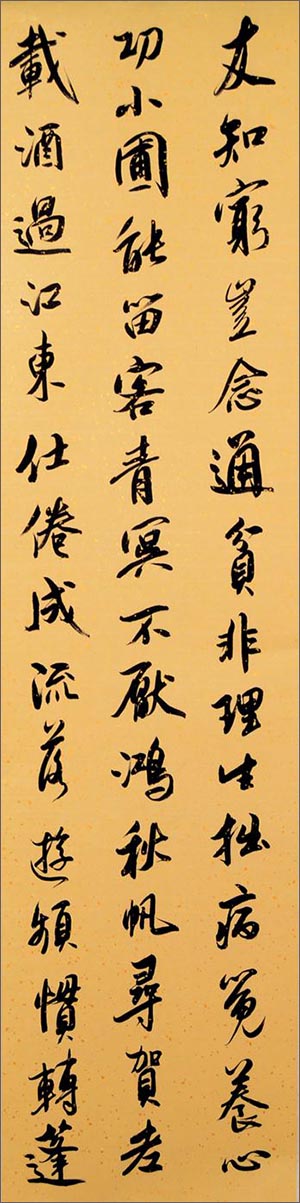 友知窮豈念通貧非理生拙病覺養心
功小圃能留客青冥不厭鴻秋帆尋賀老
載酒過江東仕倦成流落遊頻慣轉蓬